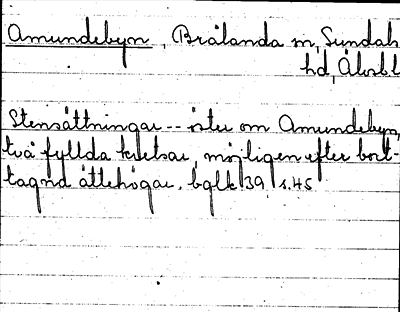 Amundebyn, Brålanda sn, Sundals
hd, Älvsb.l
Stensättningar -- öster om Amundebyn,
två fyllda kretsar, möjligen efter bort-
tagna ättehögar. bglk 39, s. 45